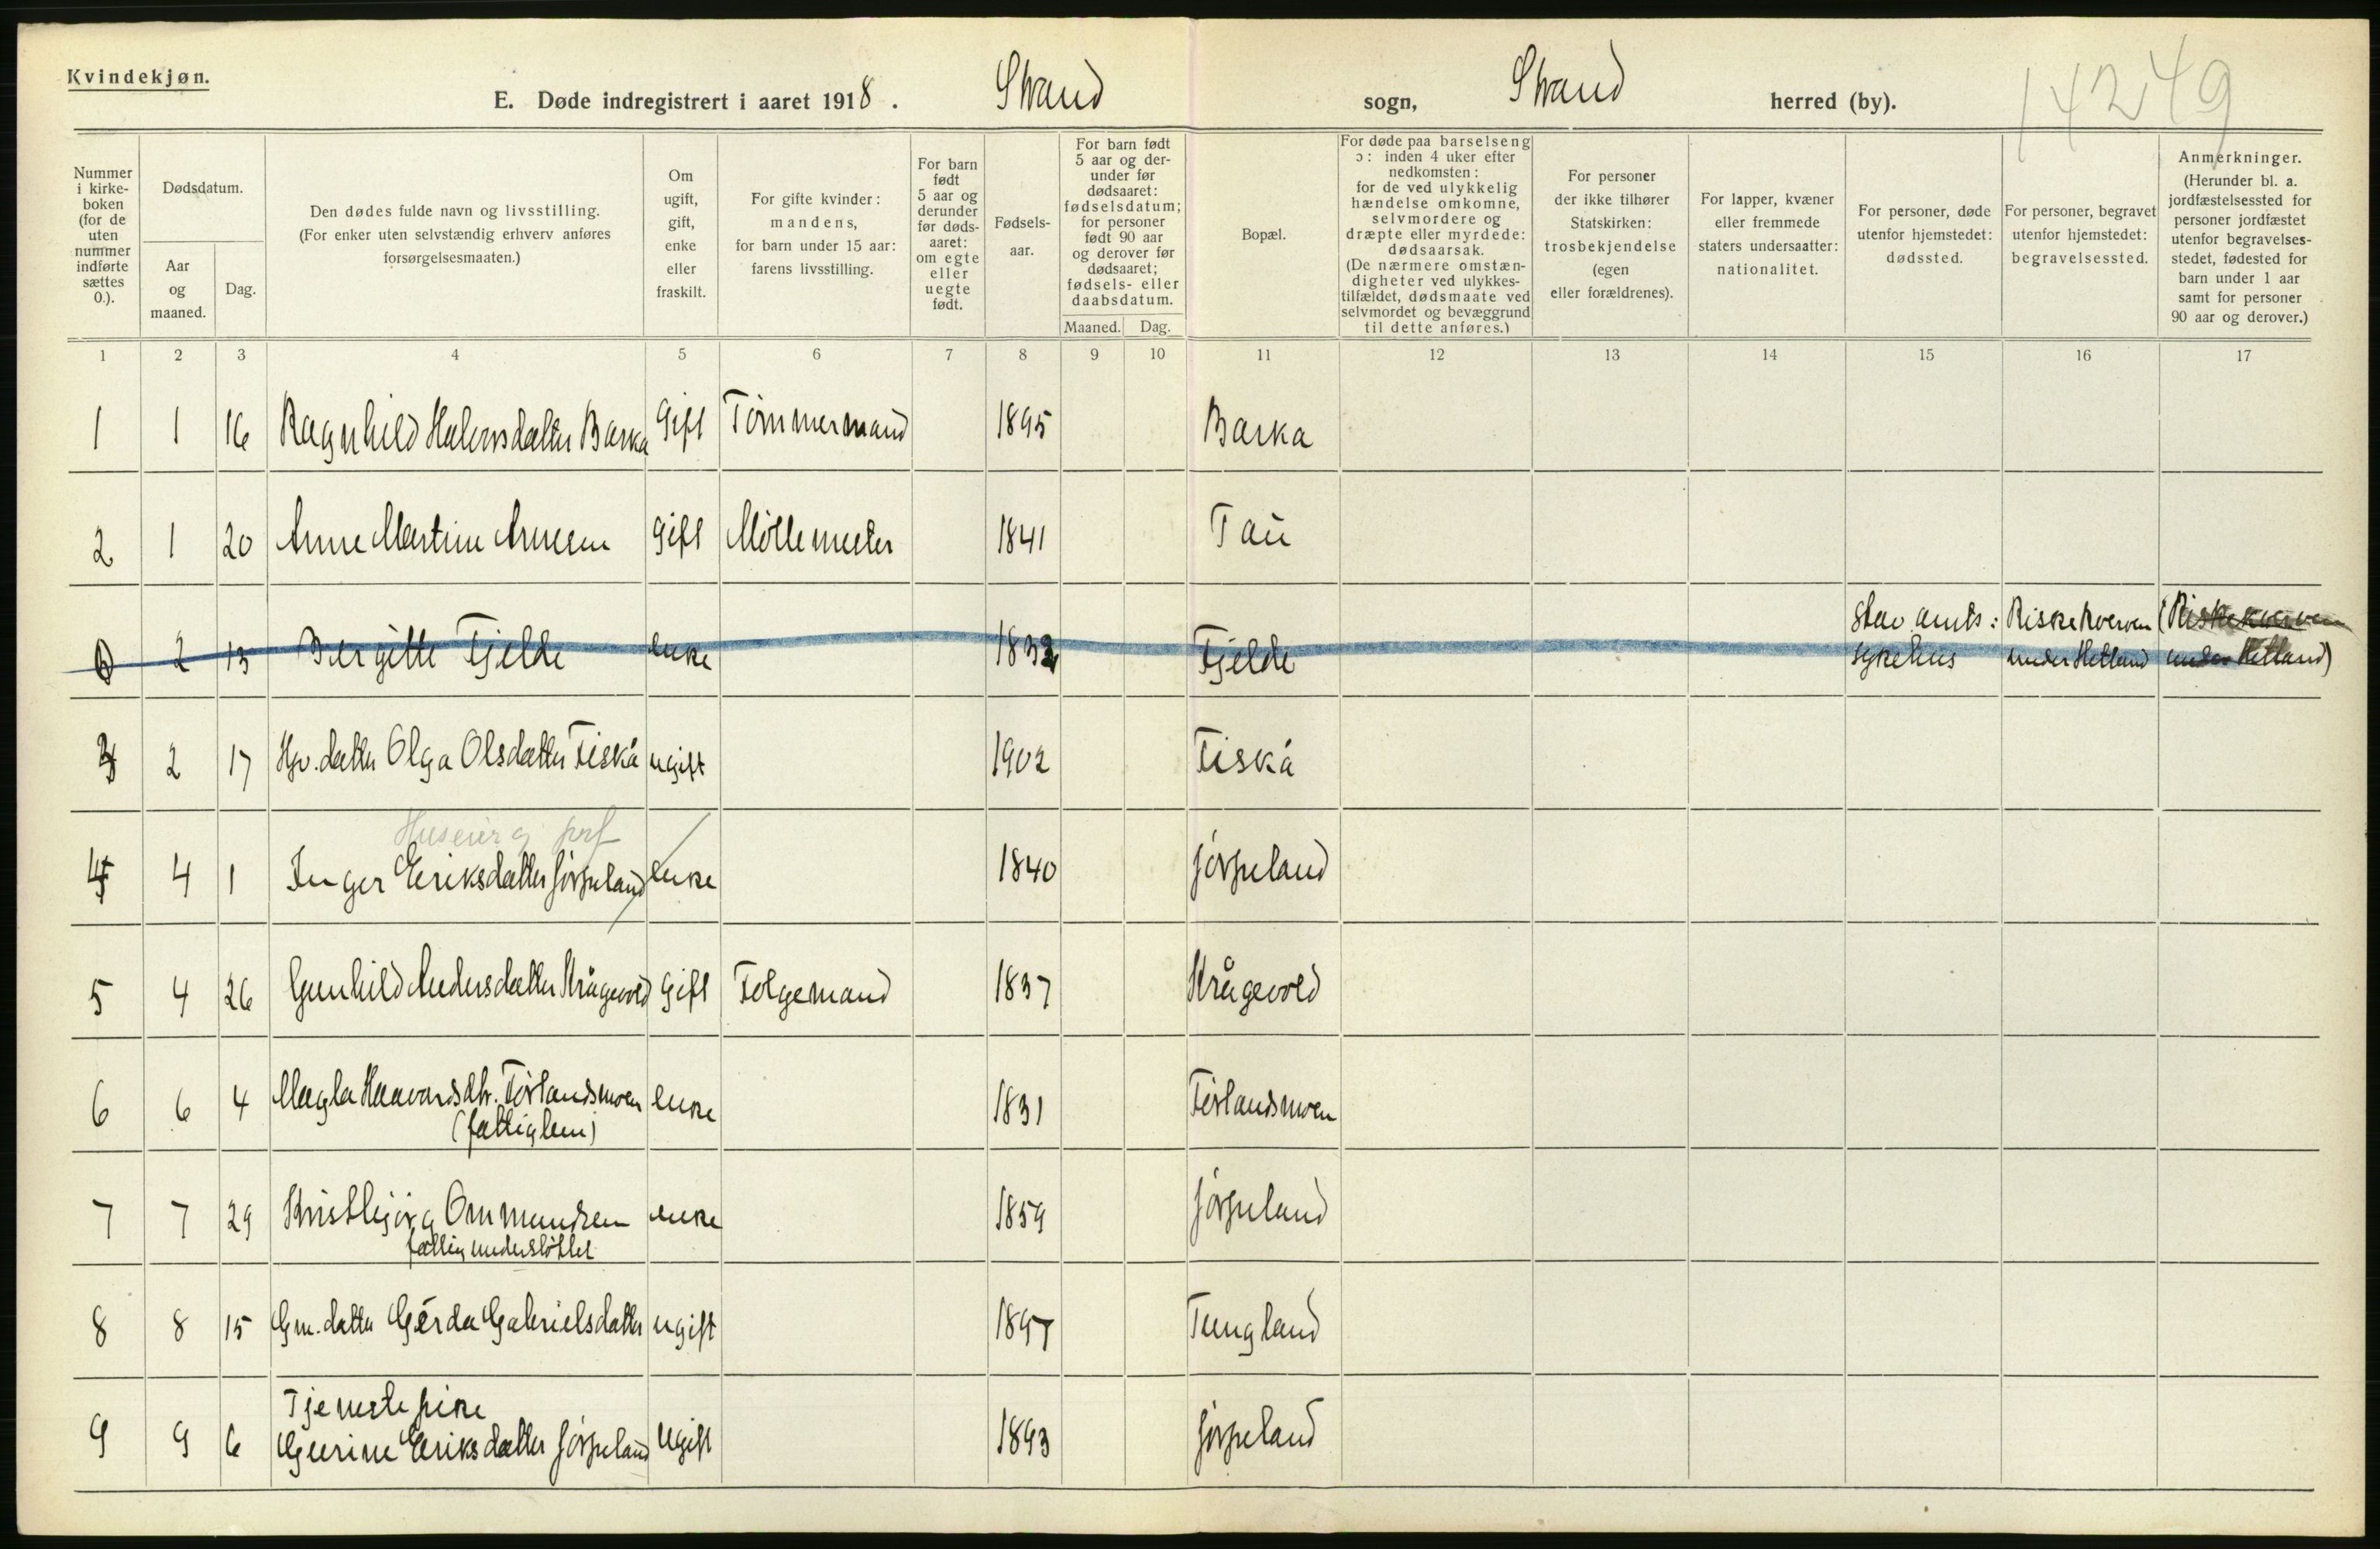 Kvindekjøn.
E. Døde indregistrert i aaret 1918. Strand sogn, Strand herred (by).
14249
Nummer i kirkeboken (for de uten nummer indførte sættes 0.).
Dødsdatum.
Aar og maaned.
Dag.
Den dødes fulde navn og livsstilling. (For enker uten selvstændig erhverv anføres forsørgelsesmaaten.)
Om ugift, gift, enke eller fraskilt.
For gifte kvinder: mandens, for barn under 15 aar: farens livsstilling.
For barn født 5 aar og derunder før dødsaaret: om egte eller uegte født.
Fødselsaar.
For barn født 5 aar og derunder før dødsaaret: fødselsdatum; for personer født 90 aar og derover før dødsaaret; fødsels- eller daabsdatum.
Maaned. Dag.
Bopæl.
For døde paa barselseng ɔ: inden 4 uker efter nedkomsten: for de ved ulykkelig hændelse omkomne, selvmordere og dræpte eller myrdede: dødsaarsak. (De nærmere omstændigheter ved ulykkestilfældet, dødsmaate ved selvmordet og bevæggrund til dette anføres.)
For personer der ikke tilhører Statskirken: trosbekjendelse (egen eller forældrenes).
For lapper, kvæner eller fremmede staters undersaatter: nationalitet.
For personer, døde utenfor hjemstedet: dødssted.
For personer, begravet utenfor hjemstedet: begravelsessted.
Anmerkninger. (Herunder bl. a. jordfæstelsessted for personer jordfæstet utenfor begravelsesstedet, fødested for barn under 1 aar samt for personer 90 aar og derover.)
1 2 3 4 5 6 7 8 9 10 11 12 13 14 15 16 17
1 1 16 Ragnhild Halvorsdatter Barka Gift Tømmermand 1895 Barka
2 1 20 Anne Martine Arnesen Gift Møllemester 1841 Tau
0 2 13 Bergitte Fjelde enke 1832 Fjelde Stav amts: sykehus Riskekverven under Hetland (Riskekverven under Hetland)
3 2 17 Hjv. datter Olga Olsdatter Fiskå ugift 1902 Fiskå
Huseier
4 4 1 Inger Eriksdatter Jørpeland enke 1840 Jørpeland
5 4 26 Gunhild Andersdatter Krågevold Gift Folgemand 1837 Krågevold
6 6 4 Magla Haavardsdtr. Førlandsmoen enke 1831 Førlandsmoen
(fattiglem)
7 7 29 Kristbjørg Ommundsen enke 1859 Jørpeland
fattigunderstøttet
8 8 15 Gm. datter Gerda Gabrielsdatter ugift 1897 Tungland
Tjenestepike
9 9 6 Gurine Eriksdatter Jørpeland Ugift 1893 Jørpeland